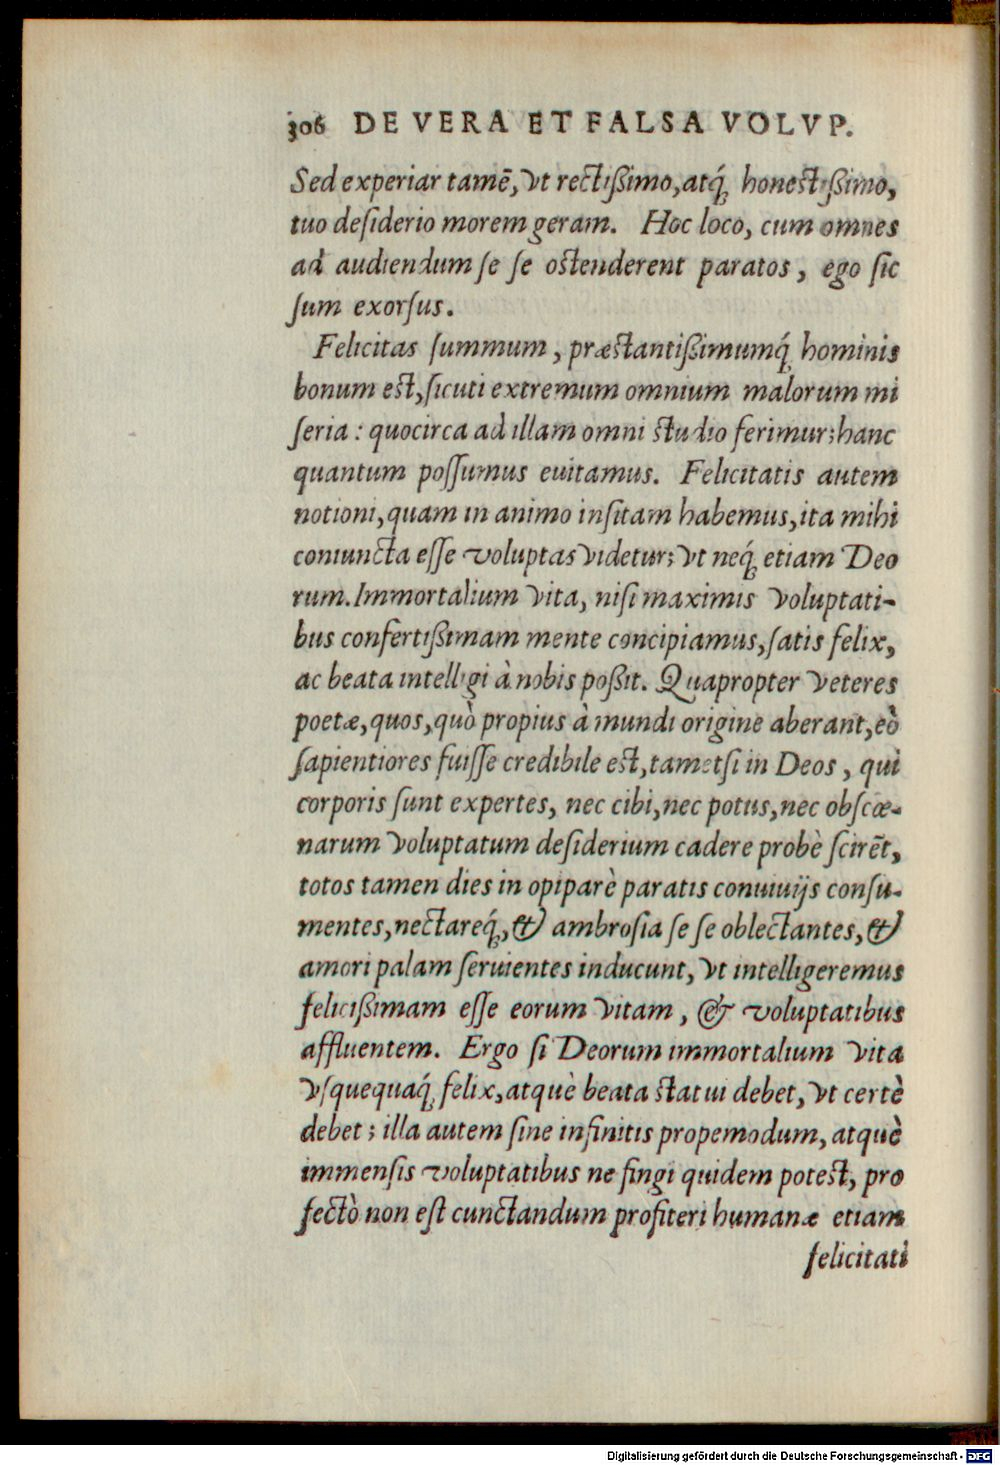 306 DE VERA ET FALSA VOLVP.
Sed experiar tamē, vt rectißimo, atq́; honestißimo,
tuo desiderio morem geram. Hoc loco, cum omnes
ad audiendum se se ostenderent paratos, ego sic
sum exorsus.
Felicitas summum, præstantißimumq́; hominis
bonum est, sicuti extremum omnium malorum mi
seria: quocirca ad illam omni studio ferimur; hanc
quantum possumus euitamus. Felicitatis autem
notioni, quam in animo insitam habemus, ita mihi
coniuncta esse voluptas videtur; vt neq́; etiam Deo
rum. Immortalium vita, nisi maximis voluptati-
bus confertißimam mente concipiamus, satis felix,
ac beata intelligi à nobis poßit. Quapropter veteres
poetæ, quos, quò propius à mundi origine aberant, eò
sapientiores fuisse credibile est, tametsi in Deos, qui
corporis sunt expertes, nec cibi, nec potus, nec obscœ-
narum voluptatum desiderium cadere probè scirēt,
totos tamen dies in opiparè paratis conuiuijs consu-
mentes, nectareq́;, & ambrosia se se oblectantes, &
amori palam seruientes inducunt, vt intelligeremus
felicißimam esse eorum vitam, & voluptatibus
affluentem. Ergo si Deorum immortalium vita
vsquequaq́; felix, atquè beata statui debet, vt certè
debet; illa autem sine infinitis propemodum, atquè
immensis voluptatibus ne fingi quidem potest, pro
fectò non est cunctandum profiteri humanæ etiam
felicitati
Digitalisierung gefördert durch die Deutsche Forschungsgemeinschaft - DFG